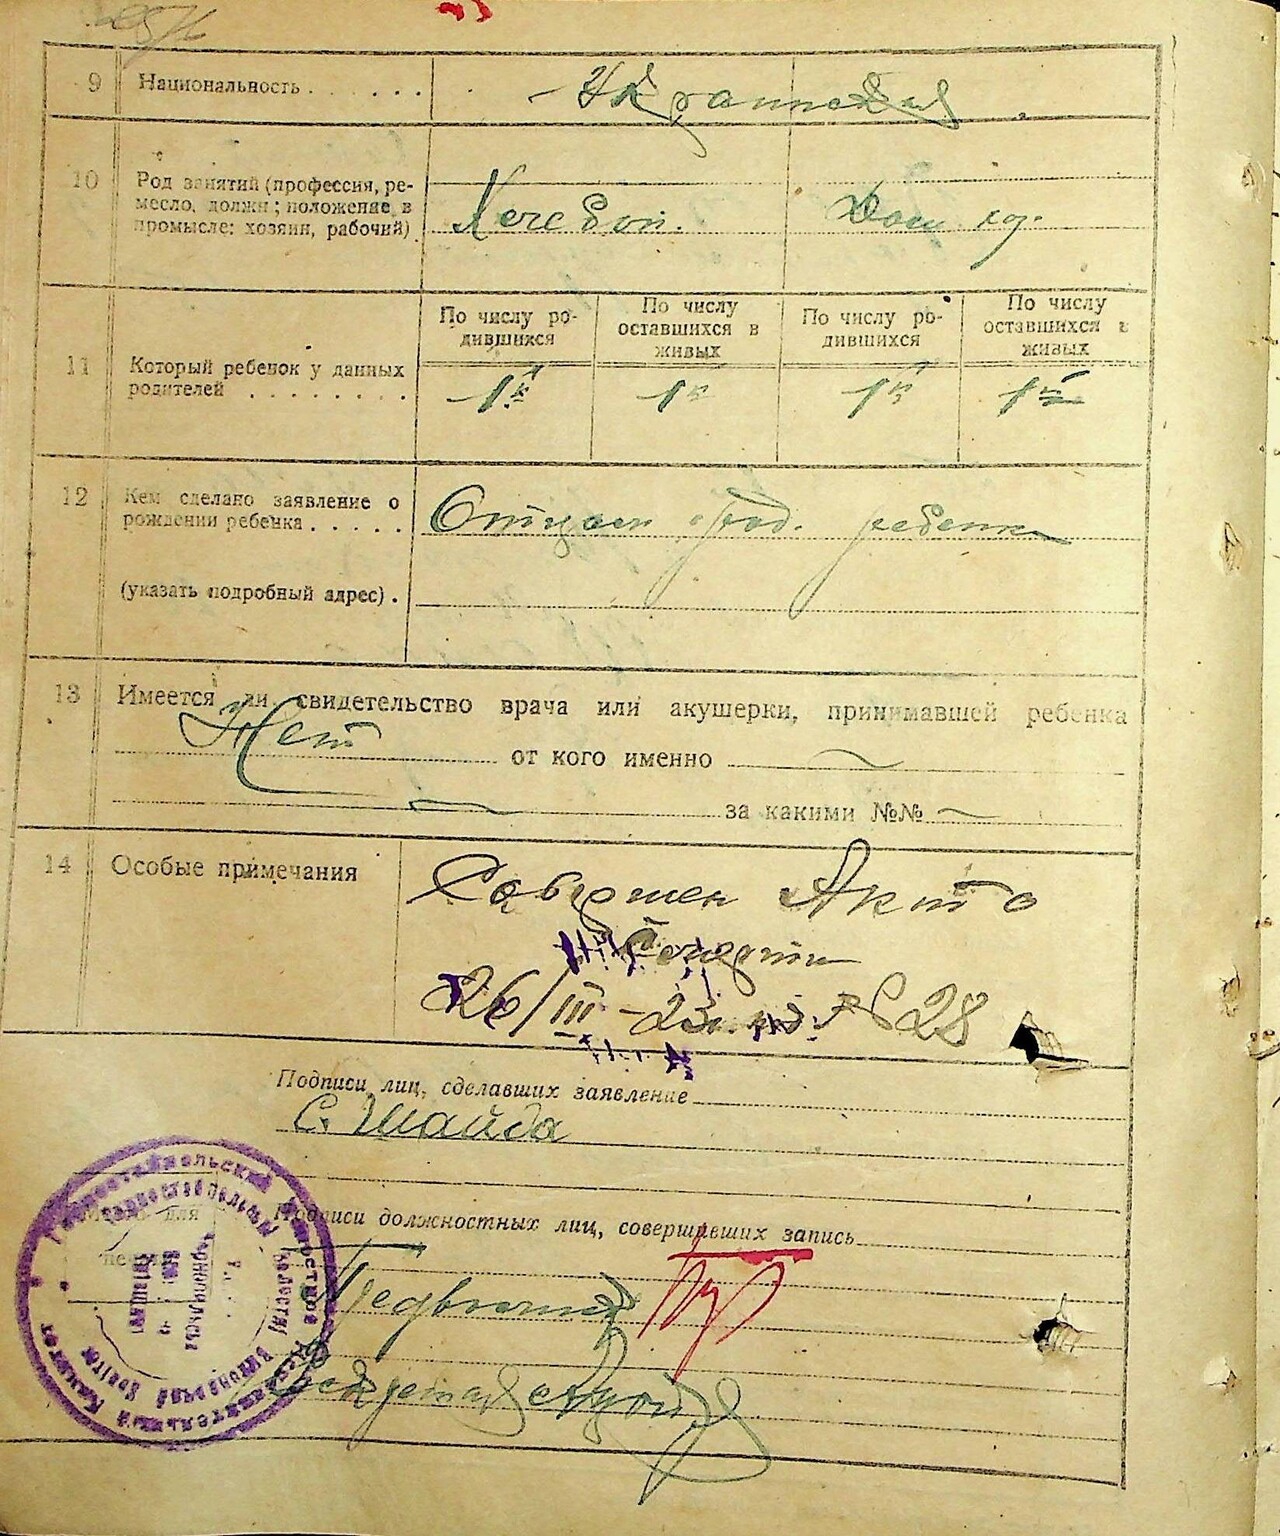 9 Национальность . . . . . . - Украинская
10 Род занятий (профессия, ре-
месло, должн; положение в
промысле: хозяин, рабочий)
Хлебоп. Дом хоз.
По числу ро-
дившихся
По числу
оставшихся в
живых
По числу ро-
дившихся
По числу
оставшихся в
живых
11 Который ребенок у данных
родителей . . . . . . . .
1й 1й 1й 1й
12 Кем сделано заявление о
рождении ребенка . . . . .
Отцом ребенка
(указать подробный адрес) .
13 Имеется ли свидетельство врача или акушерки, принимавшей ребенка
Нет от кого именно
за какими №№
14 Особые примечания
Совершен Акт о
26/III - 23 № 28
Подписи лиц, сделавших заявление
С. Шайда
Подписи должностных лиц, совершивших запись
Секретарь